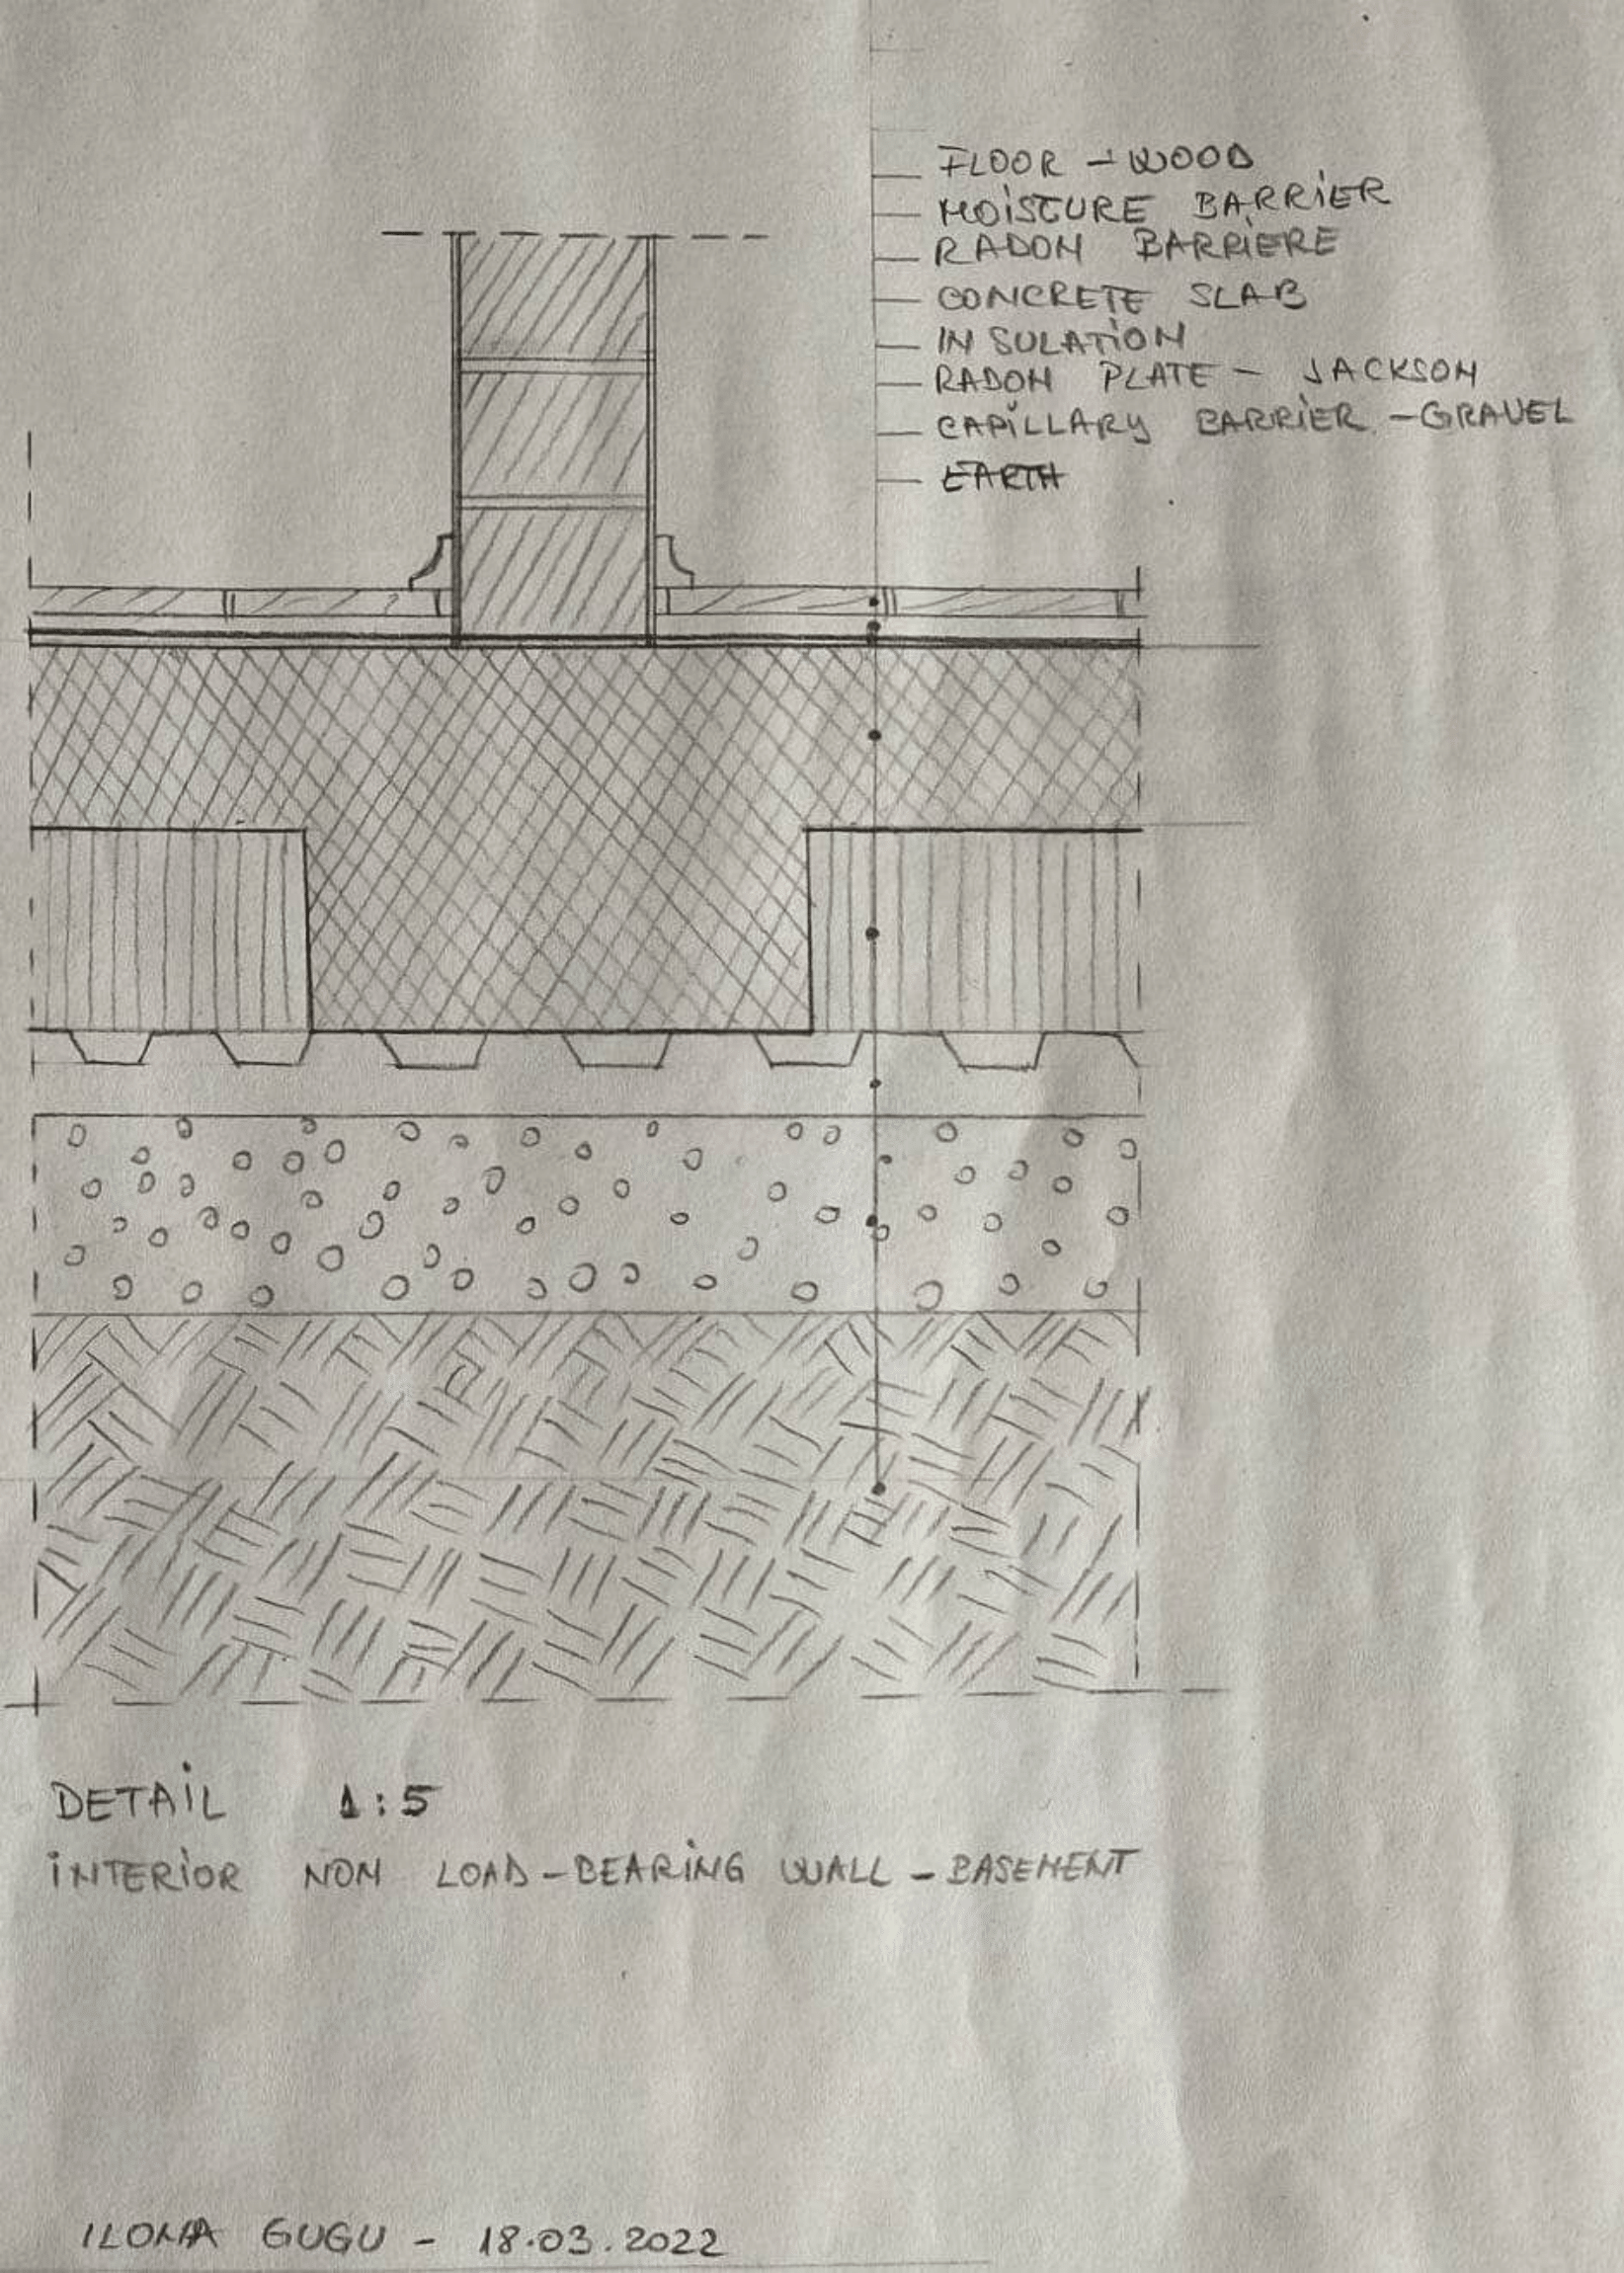 FLOOR - WOOD
MOISTURE BARRIER
RADON BARRIERE
CONCRETE SLAB
INSULATION
RADON PLATE - JACKSON
CAPILLARY BARRIER - GRAVEL
EARTH
DETAIL 1:5
INTERIOR NON LOAD-BEARING WALL - BASEMENT
ILONA GUGU - 18.03.2022